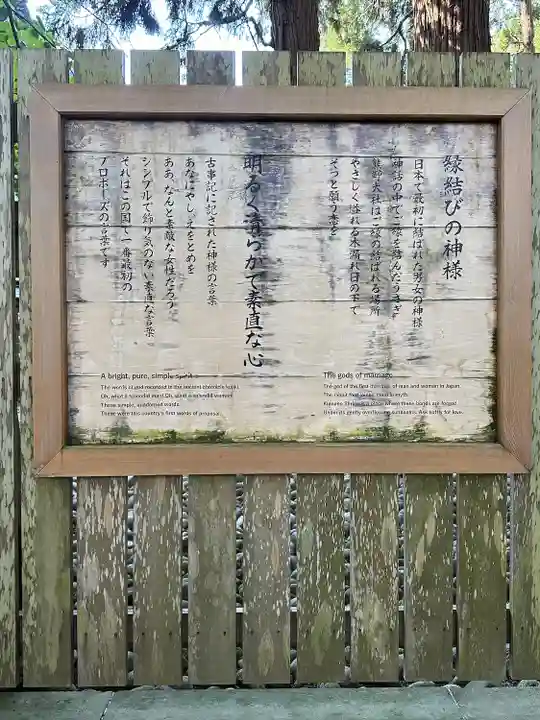 縁結びの神様
日本で最初に結ばれた男女の神様
神話の中でご縁を結んだうさぎ
熊野大社はご縁の結ばれる場所
やさしく溢れる木漏れ日の下で
そっと願う恋を
明るく清らかで素直な心
古事記に記された神様の言葉
あなにやし、えをとめを
ああ、なんと素敵な女性だろう
シンプルで飾り気のない素直な言葉
それはこの国で一番最初の
プロポーズの言葉です
A bright, pure, simple spirit
The words of god recorded in the ancient chronicle Kojiki.
Oh, what a splendid man! Oh, what a splendid woman!
These simple, unadorned words.
These were this country's first words of proposal.
The gods of marriage
The god of the first marriage of man and woman in Japan.
The rabbit that joined them in myth.
Kumano Shrine is a place where these bonds are forged.
Under its gently overflowing sunbeams. Ask softly for love.